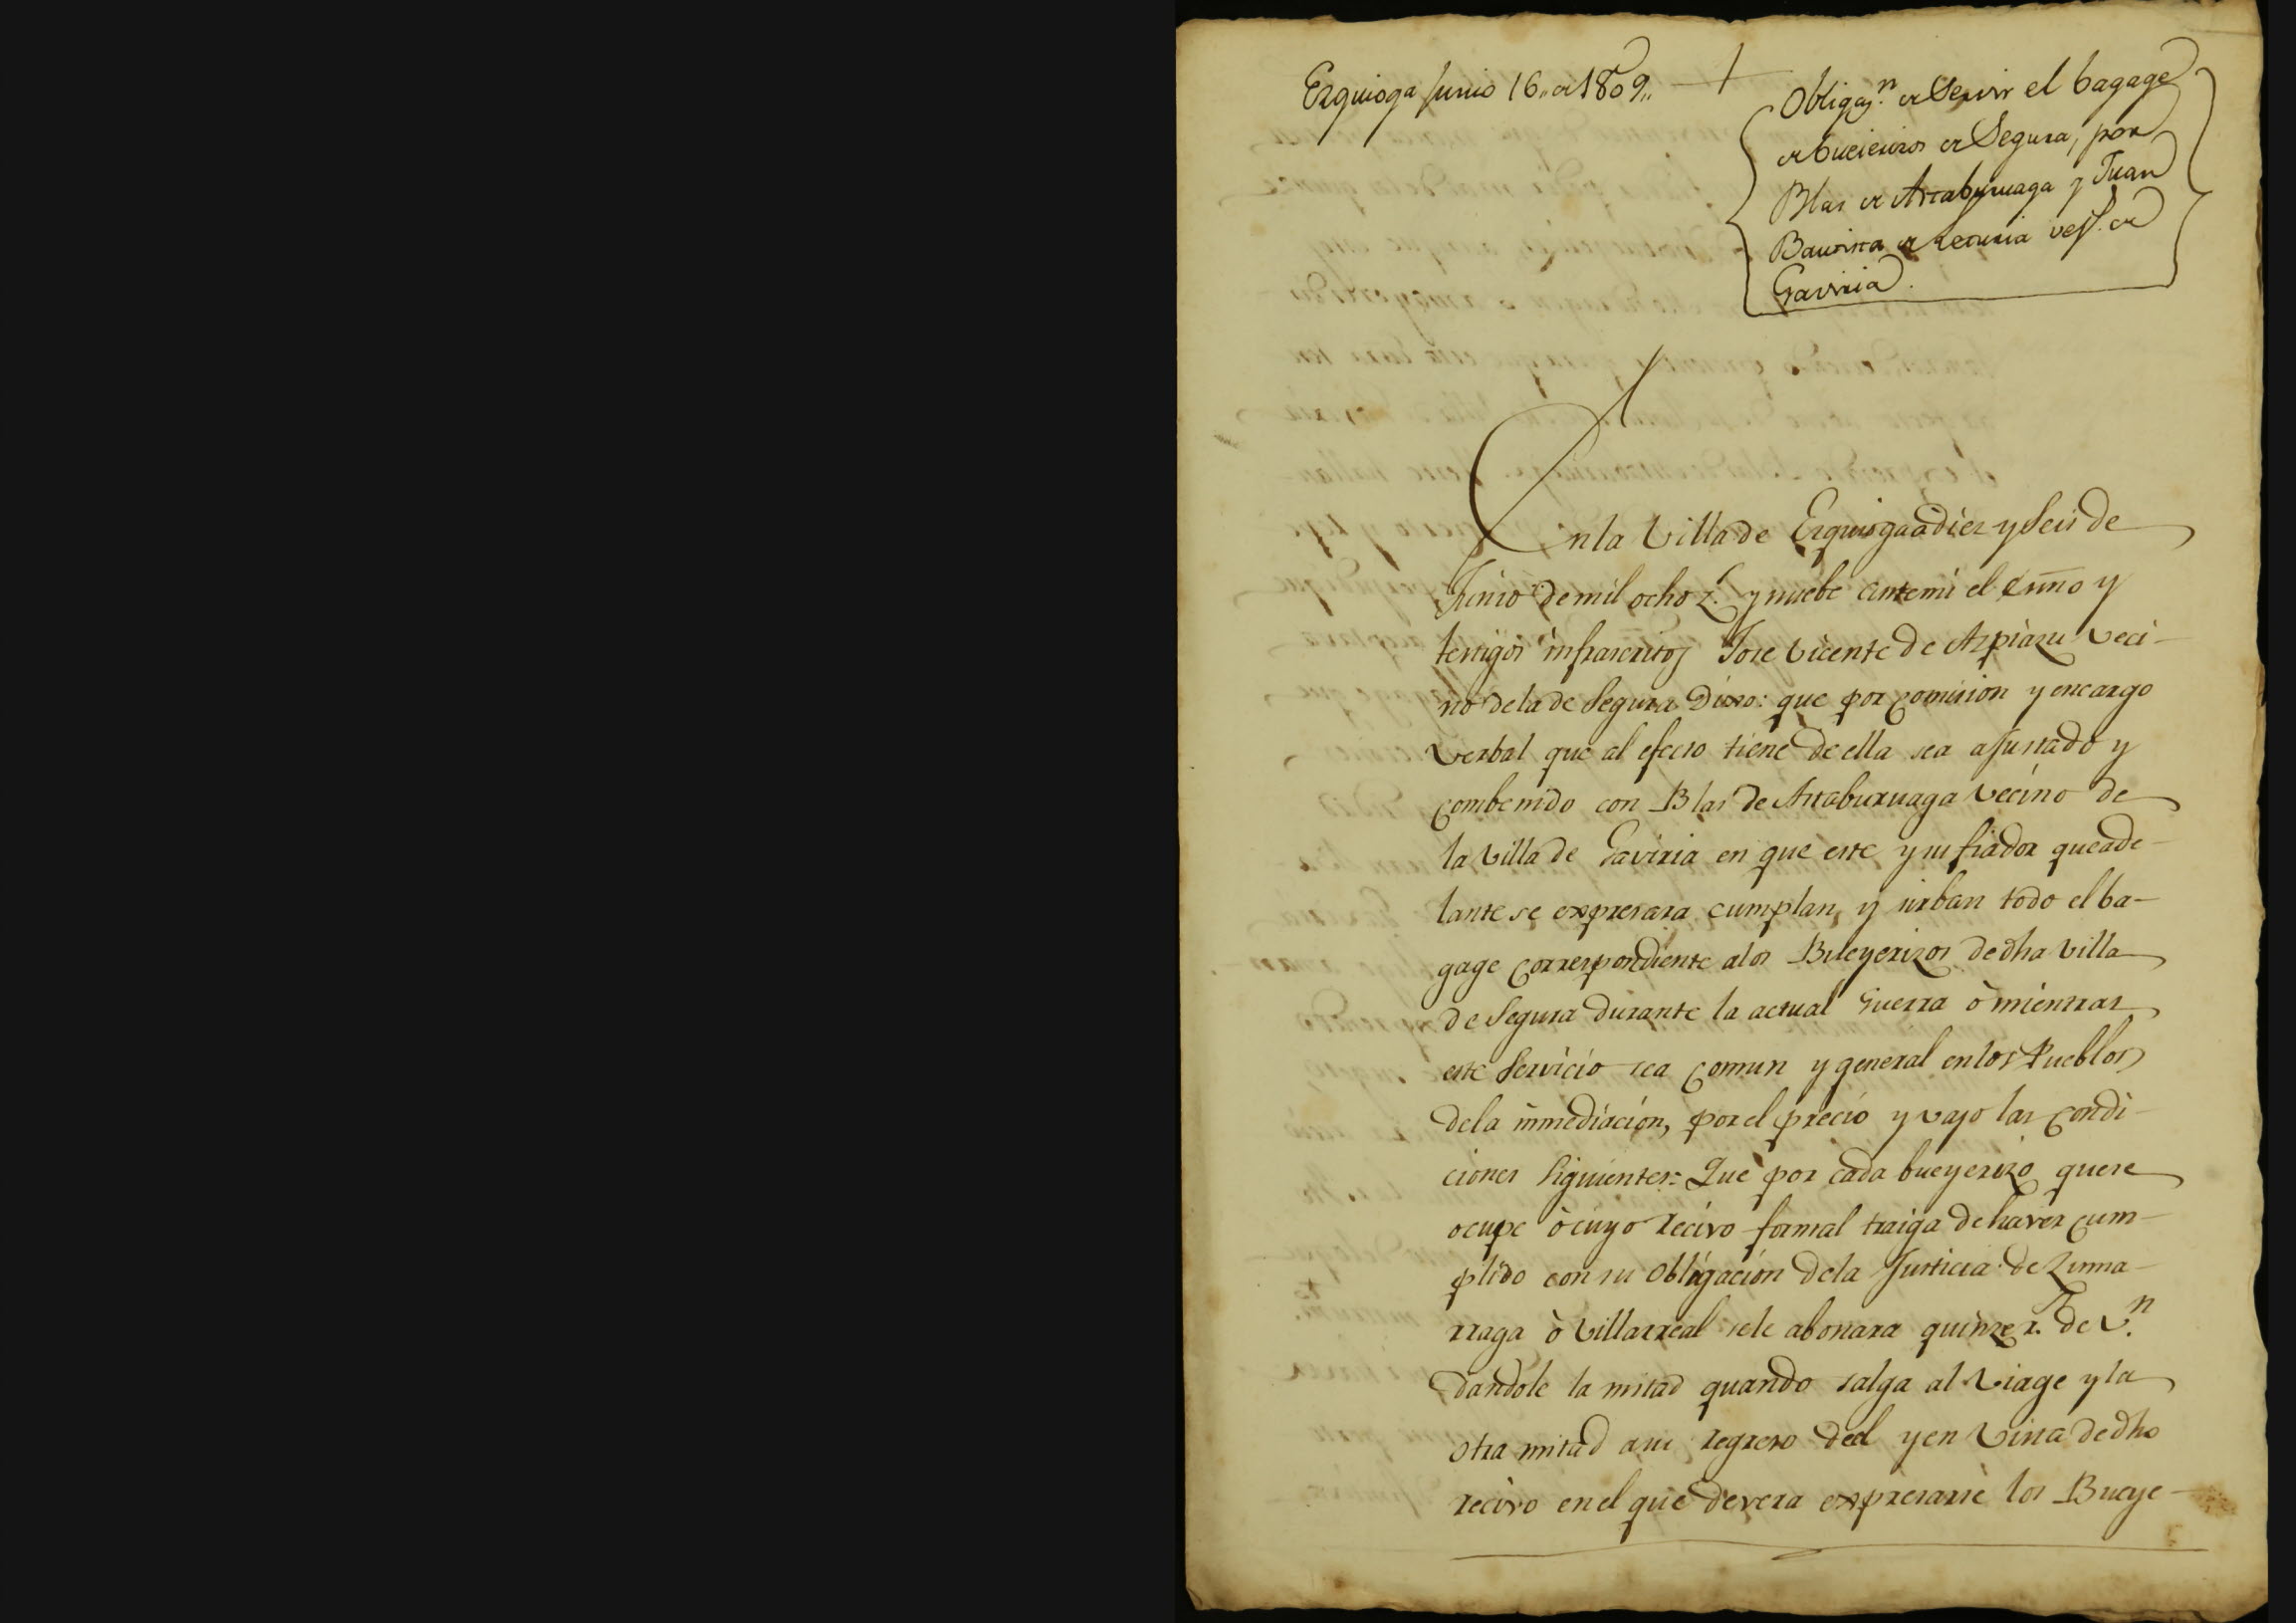 Ezquioga Junio 16,, de 1809,,
Obligaz.n de Servir el bagage
de bueierizos de Segura, por
Blas de Artaburuaga y Juan
Bautista de vez.s de
Gaviria.
En la Villa de Ezquioga a diez y Seis de
Junio de mil ocho z.s y nuebe ante mi el essno y
testigos infrascritos Jose Vicente de Azpiazu veci-
no dela de Segura Dixo: que por comision y encargo
verbal que al efecto tiene de ella sea ajustado y
combenido con Blas de Artaburuaga vecino de
la Villa de Gaviria en que este y su fiador que ade-
lante se expresara cumplan, y sirban todo el ba-
gage correspondiente alos Bueyerizos de dha Villa
de Segura durante la actual Guerra ò mientras
este Servicio sea comun y general en los Pueblos
dela inmediación, por el precio y vajo las condi-
ciones Siguientes: Que por cada bueyerizo que se
ocupe ò cuyo recivo formal traiga de haver cum-
plido con su obligación dela Justicia de Zuma-
rraga ò Villarreal sele abonara quinze r.s de v.n
dandole la mitad quando salga al viage y la
otra mitad a su regreso deel y en vista de dho
recivo en el que devera expresarse los Bueye-